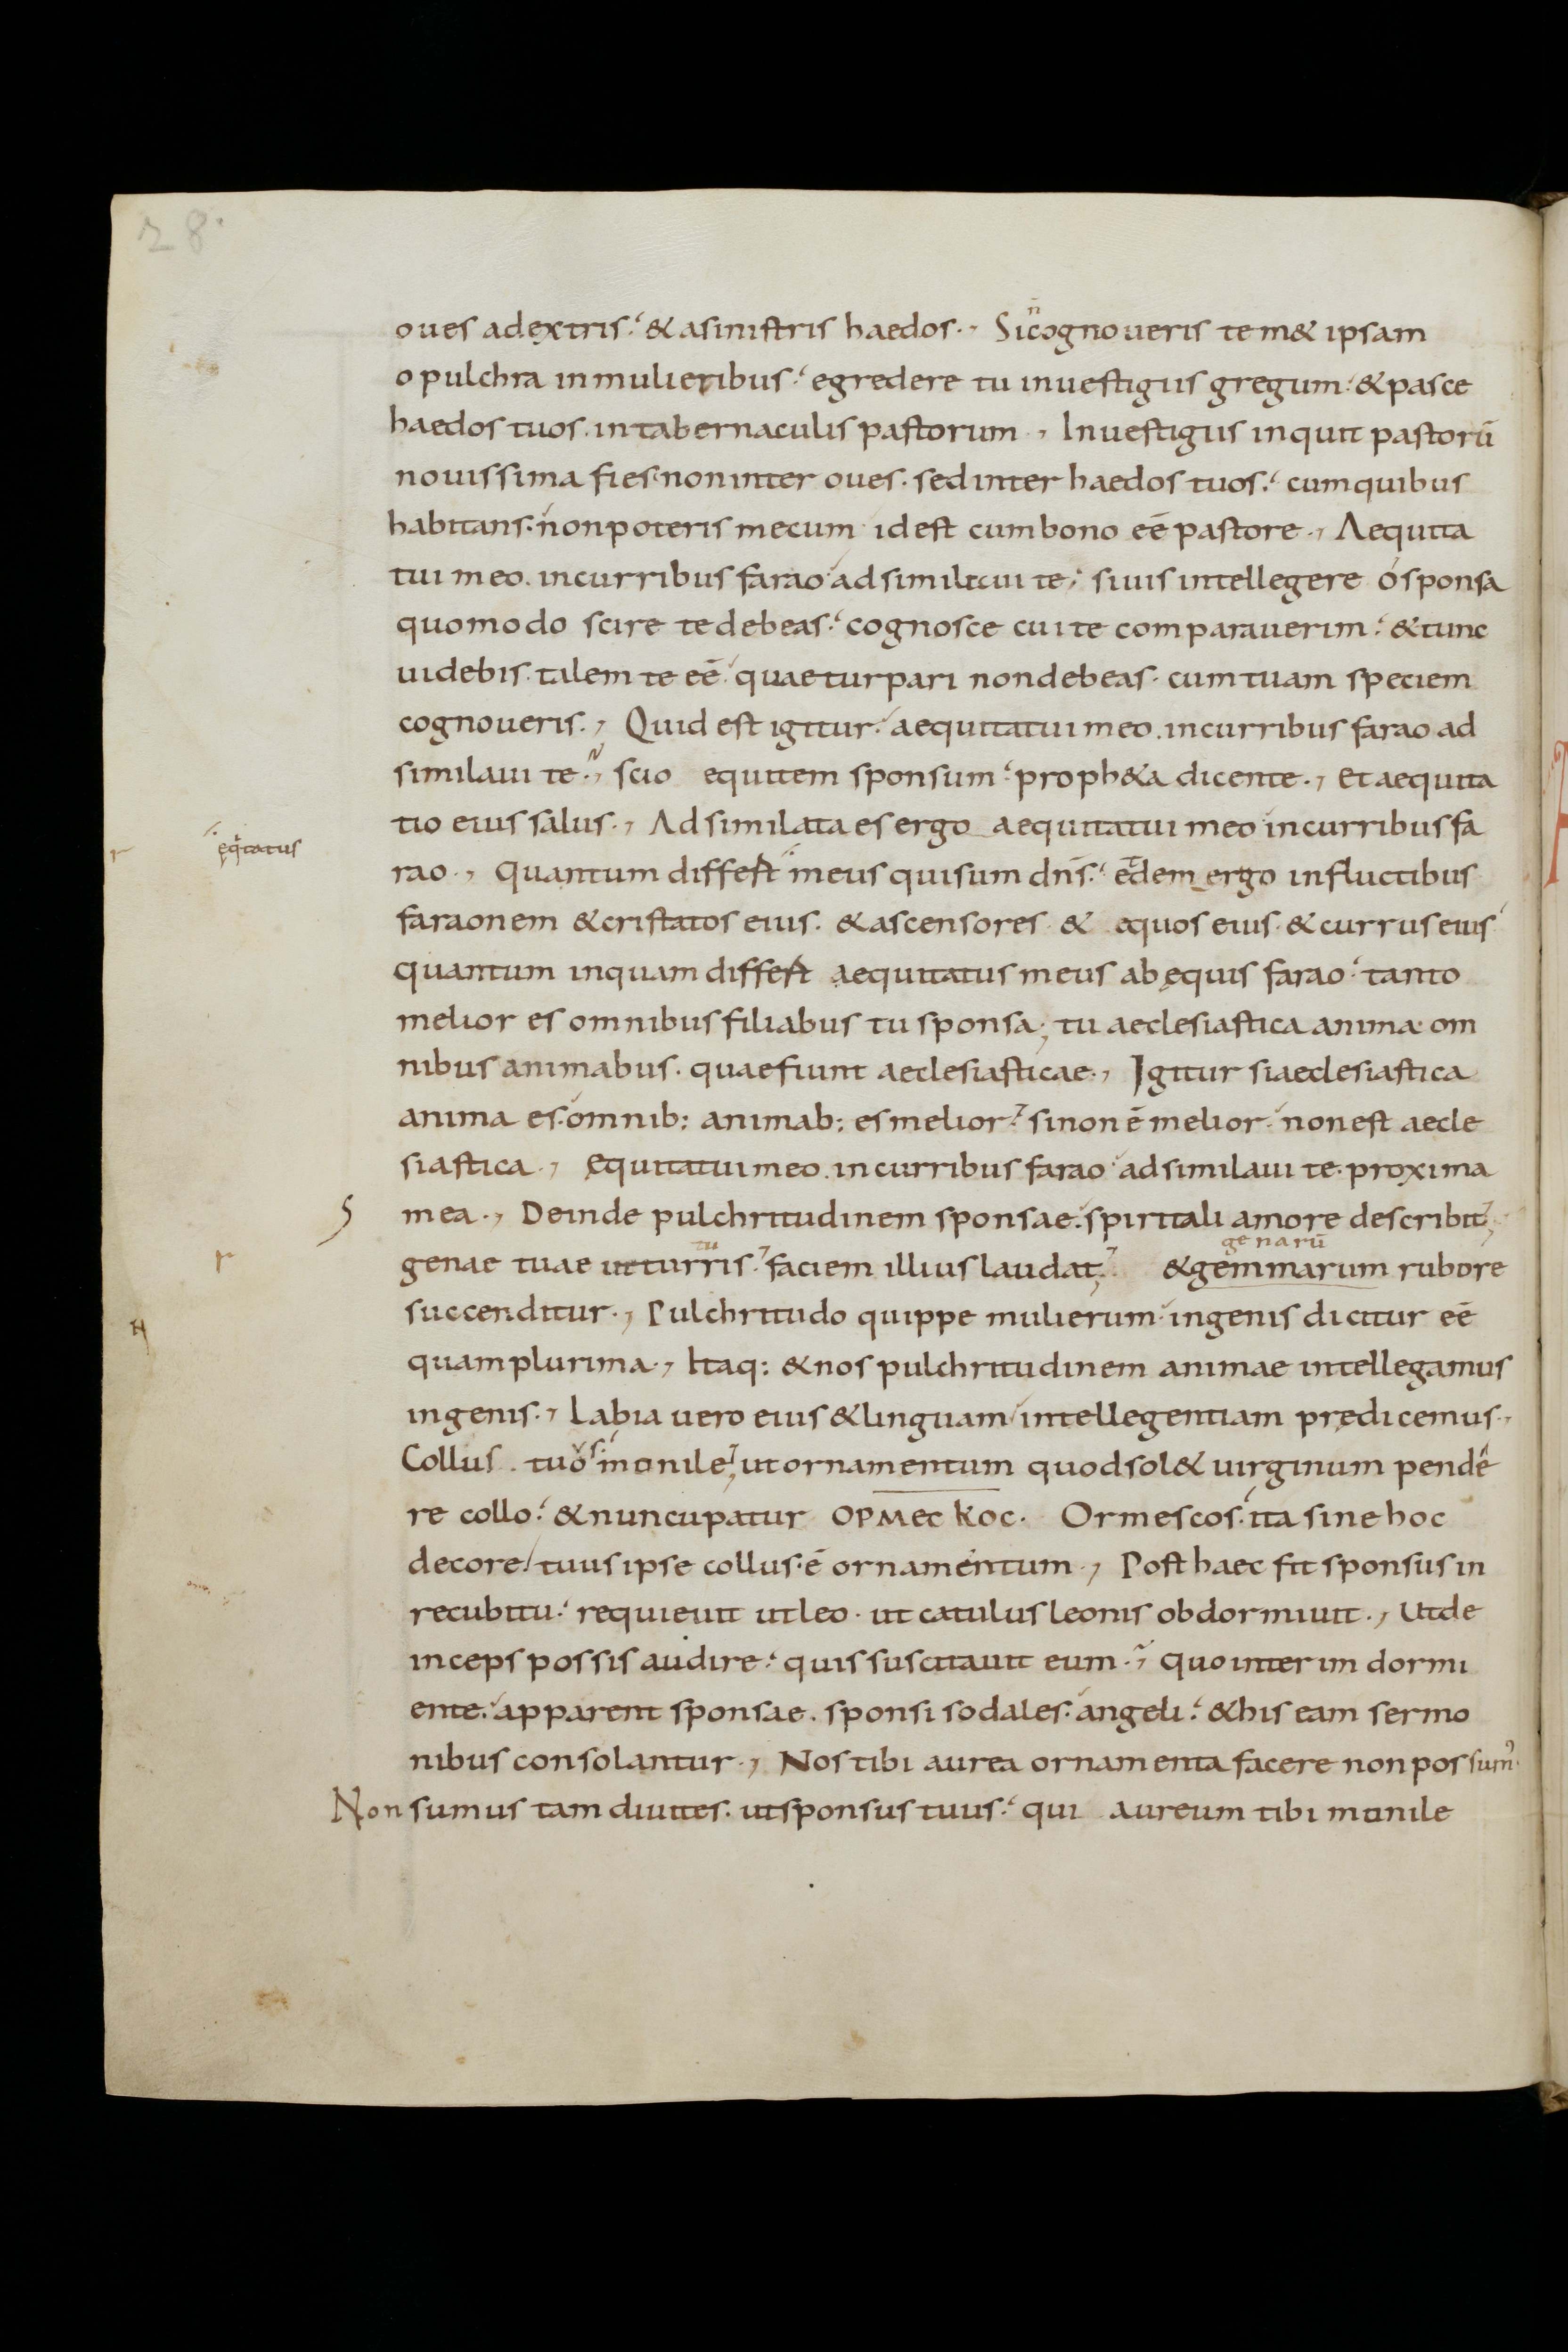 28.
oues adextris. & asinistris haedos., Si n̄ cognoueris tem& ipsam
o pulchra inmulieribus. egredere tu inuestigiis gregum. & pasce
haedos tuos. intabernaculis pastorum., Inuestigiis inquit pastorū
nouissima fies. noninter oues. sedinter haedos tuos. cumquibus
habitans. nonpoteris mecum idest cumbono eē pastore., Aequita
tui meo. incurribus farao. adsimilaui te. siuis intellegere ó sponsa
quomodo scire tedebeas. cognosce cui te comparauerim. & tunc
uidebis. talem te eē. quaeturpari nondebeas. cum tuam speciem
cognoueris., Quid est igitur. aequitatui meo. incurribus farao ad
similaui te., scio equitem sponsum. proph&a dicente., Et aequita
tio eius salus., Adsimilata es ergo aequitatui meo incurribus fa
eq̨tatus
rao., Quantum differt meus quisum dn̄s. edem ergo influctibus
faraonem & cristatos eius. & ascensores & equos eius. & currus eius
quantum inquam differt aequitatus meus ab equis farao. tanto
melior es omnibus filiabus tu sponsa; tu aeclesiastica anima om
nibus animabus. quae fiunt aeclesiasticae., Igitur si aeclesiastica
anima es. omnib: animab: es melior. sinon ē melior. nonest aecle
siastica., Equitatui meo. incurribus farao adsimilaui te. proxima
mea., Deinde pulchritudinem sponsae. spiritali amore describit;
genarū
genae tuae ut turris. faciem illius laudat; & gemmarum rubore
succenditur., Pulchritudo quippe mulierum. ingenis dicitur eē
quamplurima., Itaq: & nos pulchritudinem animae intellegamus
ingenis., Labia uero eius & linguam intellegentiam predicemus.,
Collus tuos monile; ut ornamentum quod sol& uirginum pende
re collo. & nuncupatur ΟΡΜΕC ΚΟC. Ormescos. ita sine hoc
decore. tuus ipse collus. ē ornamentum., Post haec fit sponsus in
recubitu. requieuit ut leo. ut catulus leonis obdormiuit., Ut de
inceps possis audire. quis suscitauit eum., Quo interim dormi
ente. apparent sponsae. sponsi sodales. angeli. & his eam sermo
nibus consolantur., Nos tibi aurea ornamenta facere non possum᾽.
Non sumus tam diuites. ut sponsus tuus. qui aureum tibi monile